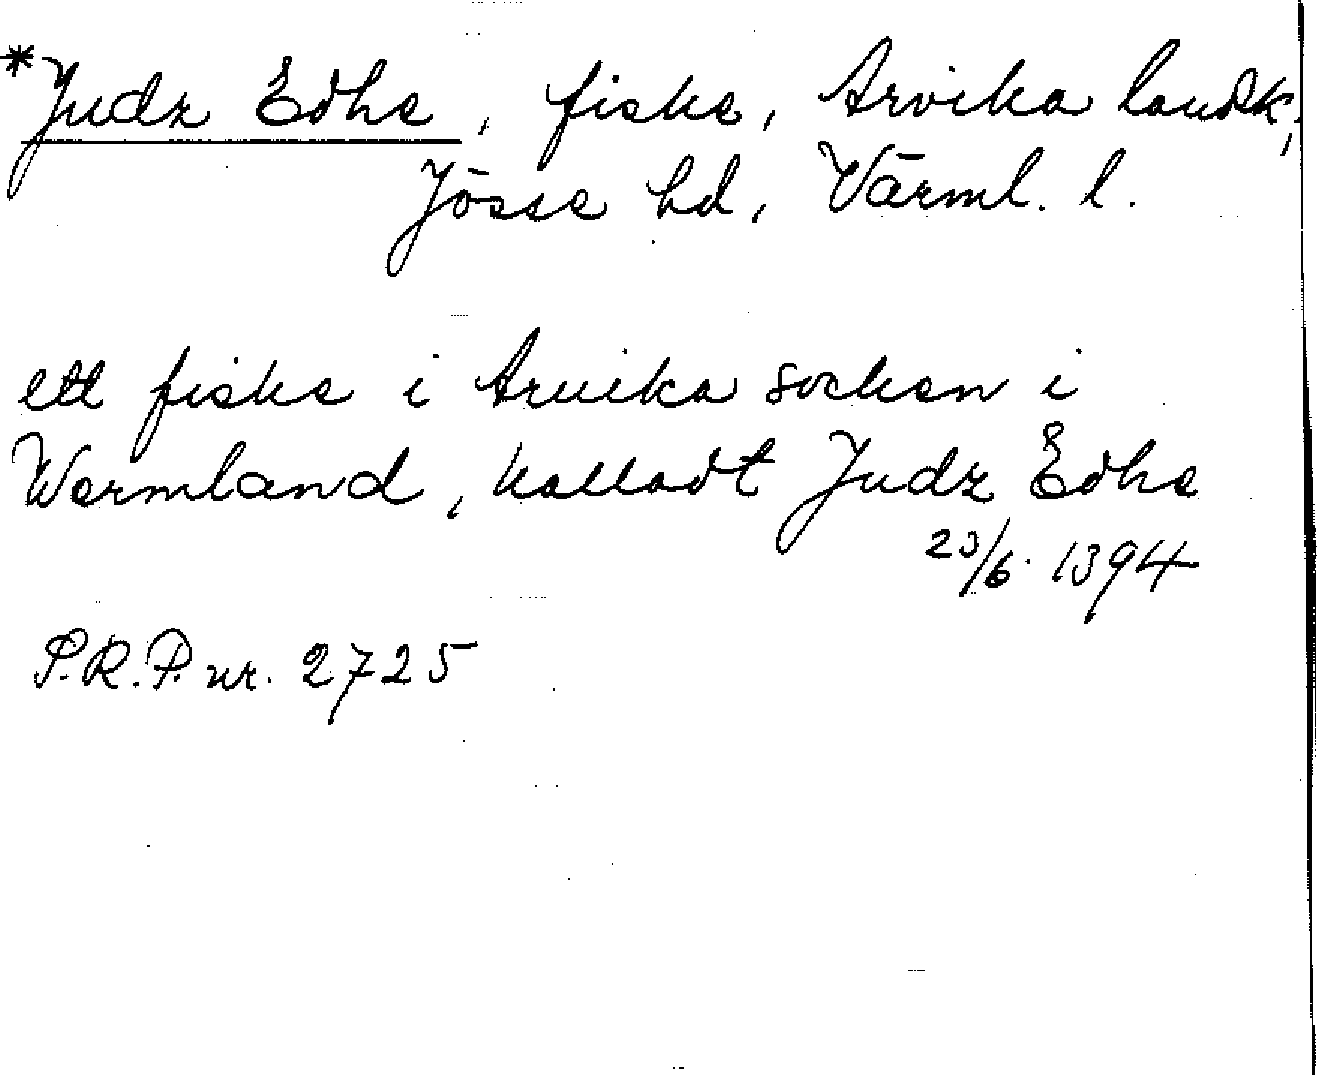 *Judz Edhe, fiske, Arvika landsk,
Jösse hd, Värml. l.
ett fiske i Arvika socken i
Wermland, kalladt Judz Edhe
23/6. 1394
S.R.P. nr. 2725